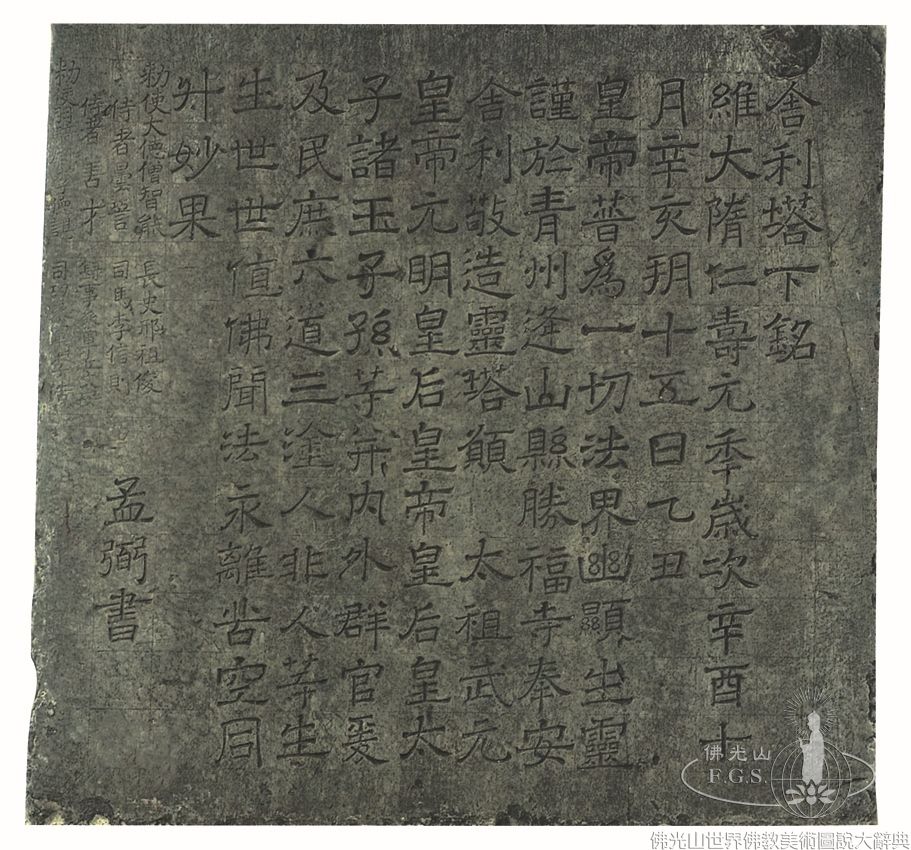 舍利塔下銘
維大隋仁壽元年歲次辛酉十
月辛亥朔十五日乙丑
皇帝普爲一切法界幽顯生靈
謹於青州逢山縣勝福寺奉安
舍利敬造靈塔願 太祖武元
皇帝元明皇后皇帝皇后皇太
子諸王子孫等并內外群官爰
及民庶六道三塗人非人等生
生世世值佛聞法永離苦空同
升妙果
敕使大德僧智能 長史邢祖俊
侍者曇 司馬李信則
侍者善才 錄事參軍丘
敕
孟弼書
佛光山
F.G.S.
佛光山世界佛教美術圖說大辭典